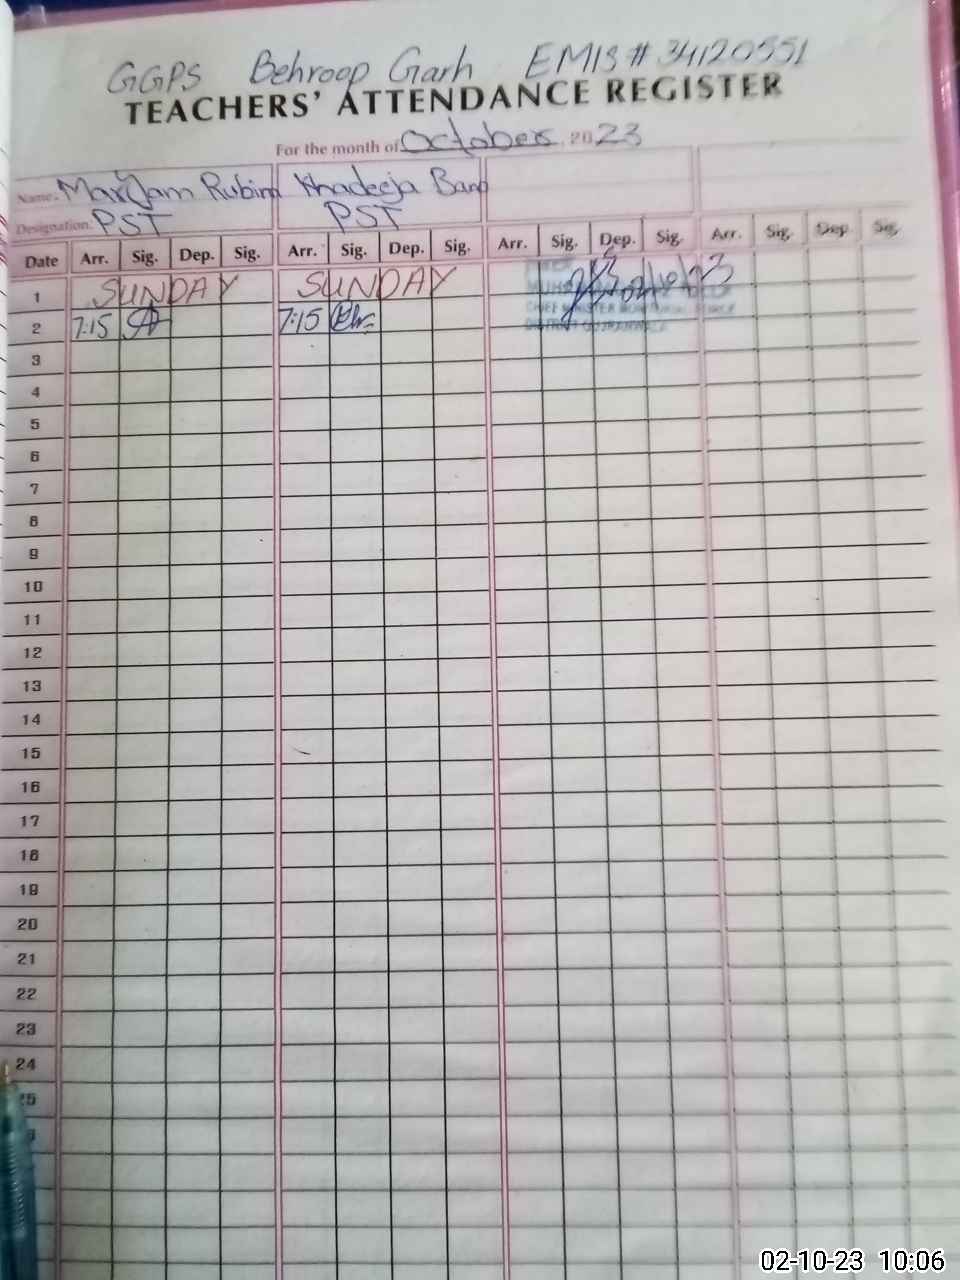 GGPS Behroop Garh EMIS # 34120551
TEACHERS' ATTENDANCE REGISTER
For the month of October 2023
Name. Maryam Rubina Khadeeja Bano
Designation. PST PST
Date Arr. Sig. Dep. Sig. Arr. Sig. Dep. Sig. Arr. Sig. Dep. Sig. Arr. Sig. Dep. Sig.
1 SUNDAY SUNDAY
2 7:15 7:15
CHIEF MINISTER MONITORING FORCE
DISTRICT GUJRANWALA
3
4
5
6
7
8
9
10
11
12
13
14
15
16
17
18
19
20
21
22
23
24
25
02-10-23 10:06